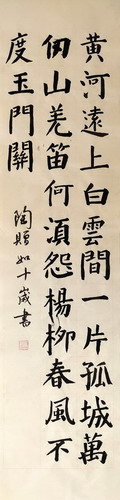 黃河遠上白雲間一片孤城萬
仞山羌笛何湏怨楊柳春風不
度玉門關
陶順如十歲書